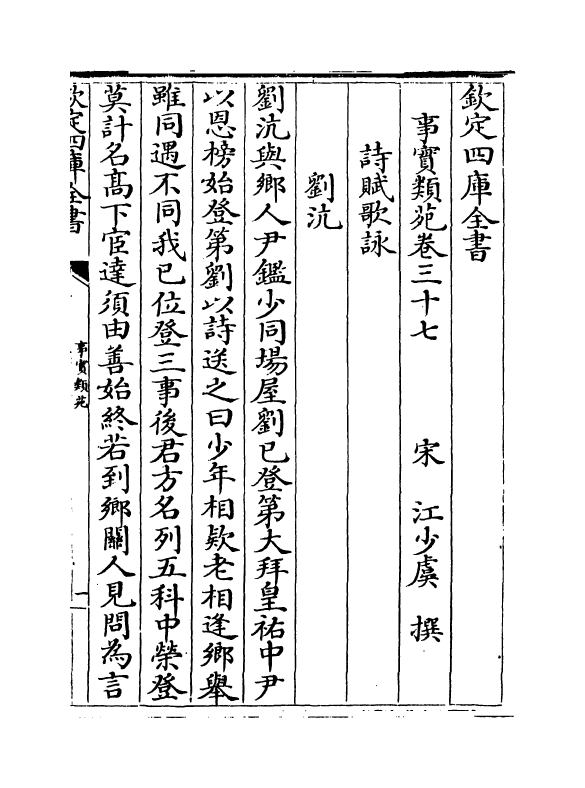 欽定四庫全書
事實類苑卷三十七　宋　江少虞　撰
詩賦歌詠
劉沆
劉沆與鄉人尹鑑少同場屋劉已登第大拜皇祐中尹
以恩榜始登第劉以詩送之曰少年相欵老相逢鄉舉
雖同遇不同我已位登三事後君方名列五科中榮登
莫計名髙下宦達須由善始終若到鄉關人見問為言
欽定四庫全書
事實類苑
一